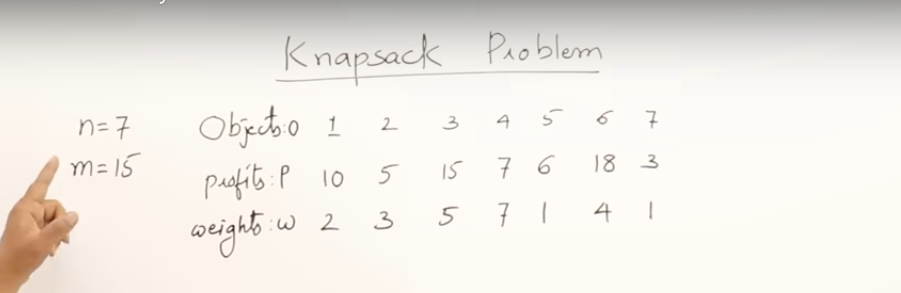 Knapsack Problem
n=7 Objects:O 1 2 3 4 5 6 7
m=15 profits:P 10 5 15 7 6 18 3
weights:w 2 3 5 7 1 4 1